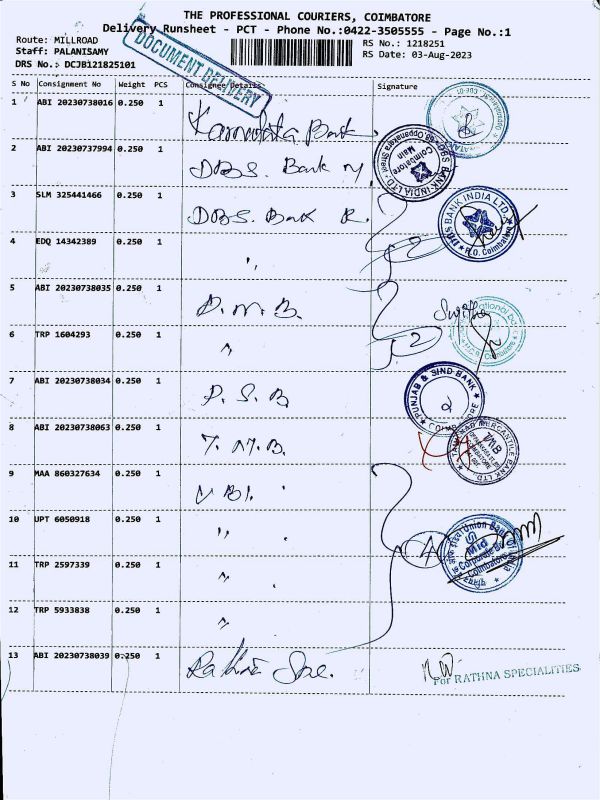 THE PROFESSIONAL COURIERS, COIMBATORE
Delivery Runsheet - PCT - Phone No.:0422-3505555 - Page No.:1
Route: MILLROAD
Staff: PALANISAMY
DRS No.: DCJB121825101
RS No.: 1218251
RS Date: 03-Aug-2023
DOCUMENT DELIVERY
S No Consignment No Weight PCS Consignee Details Signature
1 ABI 20230738016 0.250 1 Karnataka Bank
2 ABI 20230737994 0.250 1 DBS. Bank M
DBS BANK INDIA LTD. Oppanakara Street Coimbatore Main
3 SLM 325441466 0.250 1 DBS. Bank R.
DBS BANK INDIA LTD. R.O. Coimbatore
4 EDQ 14342389 0.250 1 "
2
5 ABI 20230738035 0.250 1 P. N. B.
6 TRP 1604293 0.250 1 "
2
7 ABI 20230738034 0.250 1 P. S. B.
PUNJAB & SIND BANK COIMBATORE
8 ABI 20230738063 0.250 1 T. M. B.
TAMILNAD MERCANTILE BANK LTD. TMB
9 MAA 860327634 0.250 1 UBI.
10 UPT 6050918 0.250 1 "
4
Union Bank of India Mid Corporate Br. Coimbatore
11 TRP 2597339 0.250 1 "
12 TRP 5933838 0.250 1 "
13 ABI 20230738039 0.250 1 Rathna Spe.
For RATHNA SPECIALITIES